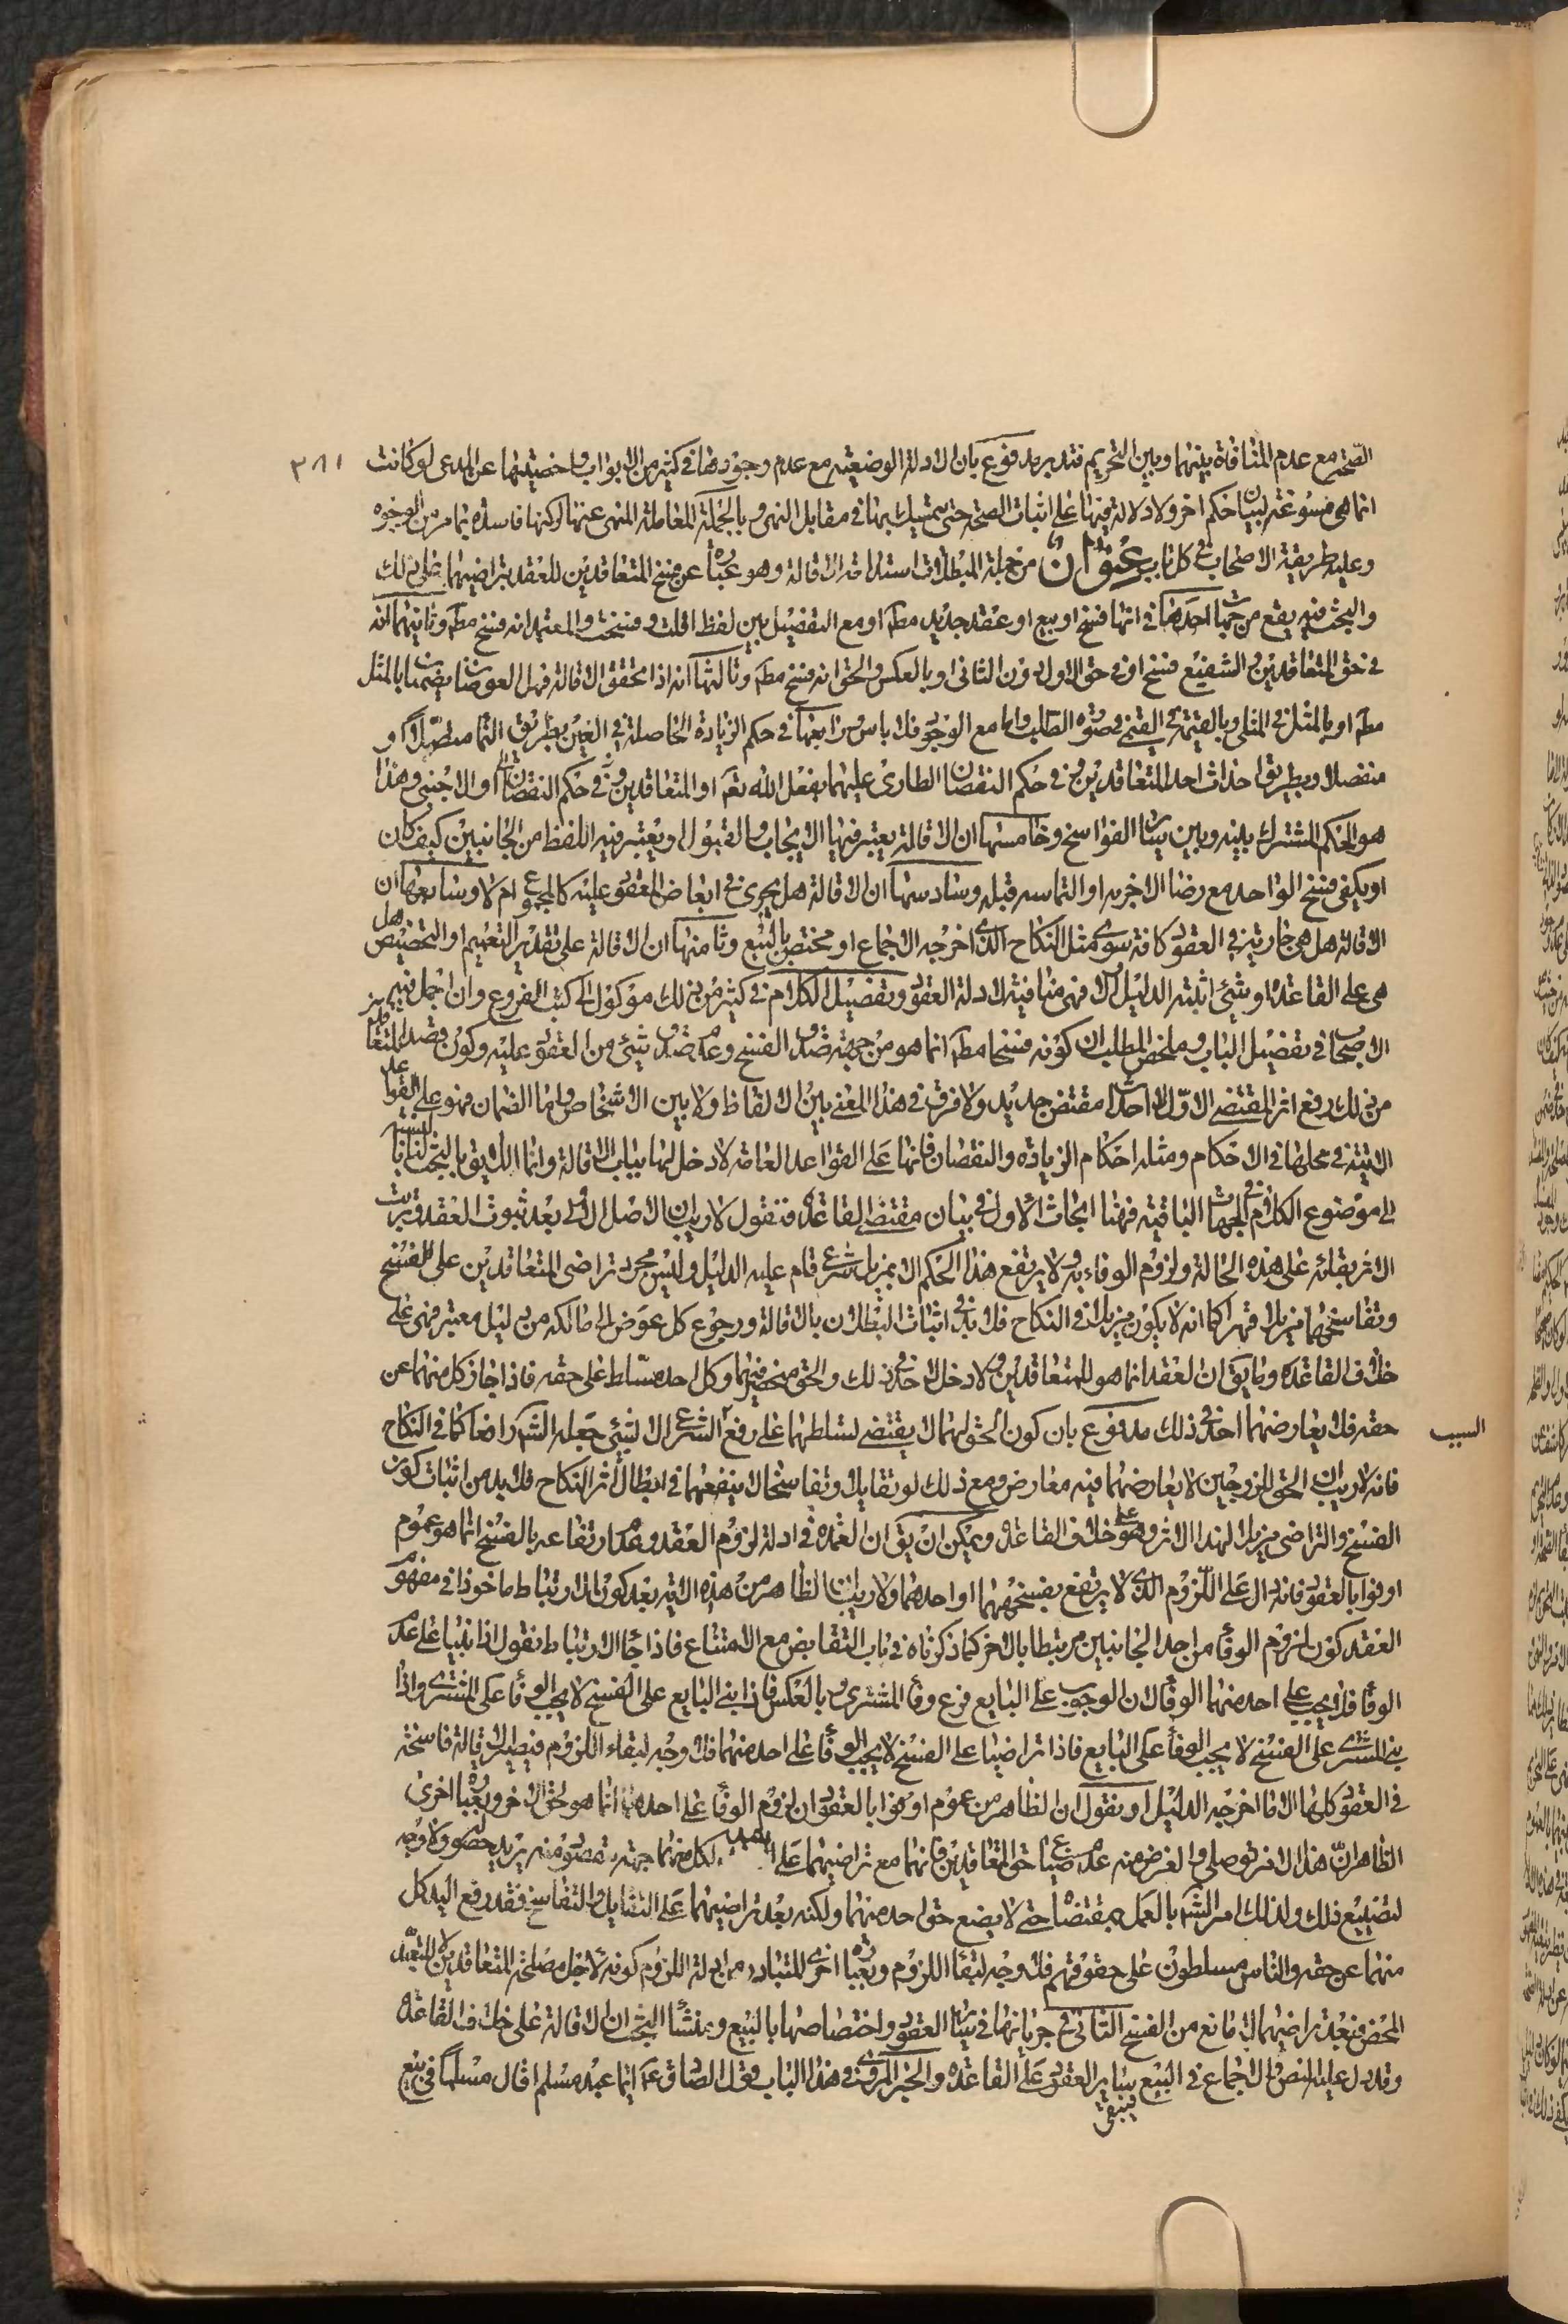 ٣٨١
الصحّة مع عدم المنافاة بينهما وبين التحريم فتدبر مدفوع بان الادلة الوضعيّة مع عدم وجودها في كثير من الابواب واخصيتها عن المدعى لو كانت
انما هى مسوغة لبيان حكم اخر ولا دلالة فيها على اثبات الصحّة حتى يتمسك بها في مقابل النهى وبالجملة المعاملة المنهى عنها لركنها فاسدة بما مر من الوجوه
وعليه طريقة الاصحاب في كل باب عنوان من جملة المبطلات استدامة الاقالة وهو عبارة عن فسخ المتعاقدين للعقد بتراضيهما على ذلك
والبحث فيه يقع من جهات احدها في انها فسخ او بيع او عقد جديد مطم او مع التفصيل بين لفظ اقلت وفسخت والمعتمد انه فسخ مطم وثانيهما انه
في حق المتعاقدين والشفيع فسخ او في حق الاول دون الثانى او بالعكس والحق انه فسخ مطم وثالثها انه اذا تحقق الاقالة فهل العوضان يضمنان بالمثل
مطم او بالمثل في المثلى وبالقيمة في القيمى في صورة التلف واما مع الوجود فلا باس ورابعها في حكم الزيادة الحاصلة في العين بطريق النماء متصلا او
منفصلا وبطريق احداث احد المتعاقدين وفي حكم النقصان الطارى عليهما بفعل الله تعم او المتعاقدين وفي حكم النقصان او الاجنبى وهذا
هو الحكم المشترك بينه وبين سائر الفواسخ وخامستها ان الاقالة يعتبر فيها الايجاب والقبول او يعتبر فيه اللفظ من الجانبين كيف كان
او يكفى فسخ الواحد مع رضا الاخر به او التماسه قبله وسادستها ان الاقالة هل يجرى في ابعاض المعقود عليه كالمجموع ام لا وسابعها ان
الاقالة هل هى جارية في العقود كافة سوى مثل النكاح الذى اخرجه الاجماع او مختص بالبيع وثامنها ان الاقالة على تقدير التعميم او التخصيص هل
هى على القاعدة او شئ اثبته الدليل والا فهى منافية لادلة العقود وتفصيل الكلام في كثير من ذلك موكول الى كتب الفروع وان اجمل فيه
الاصحاب في تفصيل الباب وملخص المطلب ان كونه فسخا مطم انما هو من جهة صدق الفسخ وعدم صدق شئ من العقود عليه وكون قصد المتعاقدين
من ذلك رفع اثر المقتضى الاوّل لا احداث مقتض جديد ولا فرق في هذا المعنى بين الالفاظ ولا بين الاشخاص واما الضمان فهو على القواعد
الاتية في محلها في الاحكام ومثله احكام الزيادة والنقصان فانها على القواعد العامة لا دخل لها بباب الاقالة وانما اللايق بالبحث لنا بالنسبة
الى موضوع الكلام في الجهات الباقية فهنا ابحاث الاول في بيان مقتضى القاعدة فنقول لا ريب ان الاصل الاولى بعد ثبوت العقد وترتب
الاثر بقائه على هذه الحالة ولزوم الوفاء به ولا يرتفع هذا الحكم الا بمزيل شرعى قام عليه الدليل وليس مجرد تراضى المتعاقدين على الفسخ
وتفاسخهما مزيلا قهرا كما انه لا يكون مزيلا في النكاح فلا بد في اثبات البطلان بالاقالة ورجوع كل عوض الى مالكه من دليل معتبر فهى على
خلاف القاعدة وما يق ان العقد انما هو للمتعاقدين ولا دخل لاحد في ذلك والحق منحصر فيهما وكل احد مسلط على حقه فاذا جاز كل منهما عن
حقه فلا يعارضهما احد في ذلك مدفوع بان كون الحق لهما لا يقتضى تسلطهما على رفع اثر الشرعى الا لشئ جعله الشرع رافعا كما في النكاح
السبب
فانه لا ريب ان الحق للزوجين لا يعارضهما فيه معارض ومع ذلك لو تقايلا وتفاسخا لا ينفعهما في ابطال اثر النكاح فلا بد من اثبات كون
الفسخ والتراضى مزيلا لهذا الاثر وهو على خلاف القاعدة ويمكن ان يق ان العمدة في ادلة لزوم العقد وعدم ارتفاعه بالفسخ انما هو عموم
اوفوا بالعقود فانه دال على اللزوم الذى لا يرتفع بفسخهما او احدهما ولا ريب ان الظاهر من هذه الاية بعد كون الارتباط ماخوذا في مفهوم
العقد كون لزوم الوفاء من احد الجانبين مرتبطا بالاخر كما ذكرناه في باب التقابض مع الامتناع فاذا جاء الارتباط نقول اذا بنيا على عدم
الوفاء فلا يجب على احد منهما الوفاء لان الوجوب على البايع فرع وفاء المشترى وبالعكس فاذا بنى البايع على الفسخ لا يجب الوفاء على المشترى واذا
بنى المشترى على الفسخ لا يجب الوفاء على البايع فاذا تراضيا على الفسخ لا يجب الوفاء على احد منهما فلا وجه لبقاء اللزوم فيصير الاقالة فاسخة
في العقود كلها الا ما اخرجه الدليل او نقول ان الظاهر من عموم اوفوا بالعقود ان لزوم الوفاء على احدهما انما هو لحق الاخر وبعبارة اخرى
الظاهر ان هذا الامر توصلى والغرض منه عدم ضياع حق المتعاقدين فانهما مع تراضيهما على لكل منهما جهة مقصودة منه يريد حصوله ولا وجه
لتضييع ذلك ولذلك امر الشرع بالعمل بمقتضاه حتى لا يضع حق احد منهما ولكنه بعد تراضيهما على التقايل والتفاسخ فقد رفع اليد كل
منهما عن حقه والناس مسلطون على حقوقهم فلا وجه لبقاء اللزوم وبعبارة اخرى المتبادر من ادلة اللزوم كونه لاجل مصلحة المتعاقدين لا للتعبد
المحض فبعد تراضيهما لا مانع من الفسخ الثانى في جريانها في سائر العقود واختصاصها بالبيع ومنشأ البحث ان الاقالة على خلاف القاعدة
وقد دل عليه النص والاجماع في البيع سائر العقود على القاعدة والخبر المروى في هذا الباب قول الصادق عم ايما عبد مسلم اقال مسلما في بيع
فيبقى